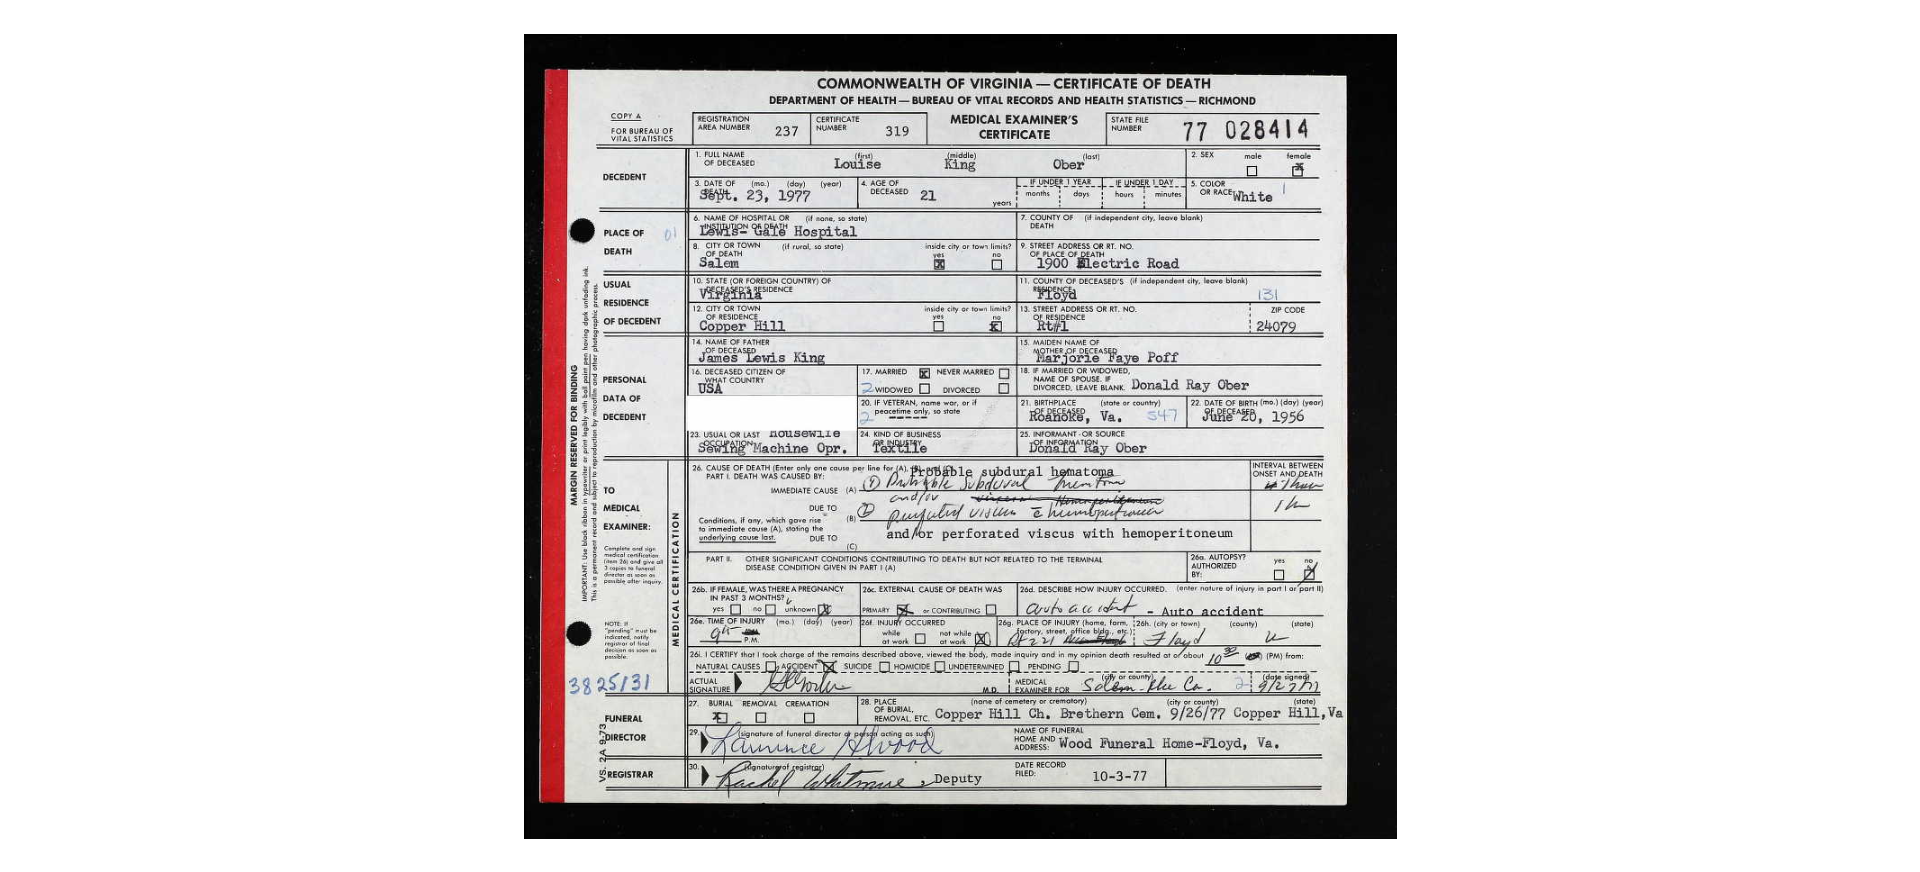 COMMONWEALTH OF VIRGINIA — CERTIFICATE OF DEATH
DEPARTMENT OF HEALTH — BUREAU OF VITAL RECORDS AND HEALTH STATISTICS — RICHMOND
COPY A
FOR BUREAU OF VITAL STATISTICS
REGISTRATION AREA NUMBER 237
CERTIFICATE NUMBER 319
MEDICAL EXAMINER'S CERTIFICATE
STATE FILE NUMBER 77 028414
DECEDENT
1. FULL NAME OF DECEASED (first) Louise (middle) King (last) Ober
2. SEX male female X
3. DATE OF DEATH (mo.) (day) (year) Sept. 23, 1977
4. AGE OF DECEASED 21 years
IF UNDER 1 YEAR months days
IF UNDER 1 DAY hours minutes
5. COLOR OR RACE White 1
PLACE OF DEATH 01
6. NAME OF HOSPITAL OR INSTITUTION OF DEATH (if none, so state) Lewis- Gale Hospital
7. COUNTY OF DEATH (if independent city, leave blank)
8. CITY OR TOWN OF DEATH (if rural, so state) Salem
inside city or town limits? yes X no
9. STREET ADDRESS OR RT. NO. OF PLACE OF DEATH 1900 Electric Road
USUAL RESIDENCE OF DECEDENT
10. STATE (OR FOREIGN COUNTRY) OF DECEASED'S RESIDENCE Virginia
11. COUNTY OF DECEASED'S RESIDENCE (if independent city, leave blank) Floyd 131
12. CITY OR TOWN OF RESIDENCE Copper Hill
inside city or town limits? yes no X
13. STREET ADDRESS OR RT. NO. OF RESIDENCE Rt#1
ZIP CODE 24079
PERSONAL DATA OF DECEDENT
14. NAME OF FATHER OF DECEASED James Lewis King
15. MAIDEN NAME OF MOTHER OF DECEASED Marjorie Faye Poff
16. DECEASED CITIZEN OF WHAT COUNTRY USA
17. MARRIED X NEVER MARRIED
2 WIDOWED DIVORCED
18. IF MARRIED OR WIDOWED, NAME OF SPOUSE. IF DIVORCED, LEAVE BLANK Donald Ray Ober
20. IF VETERAN, name war, or if peacetime only, so state 2 -----
21. BIRTHPLACE OF DECEASED (state or country) Roanoke, Va. 547
22. DATE OF BIRTH OF DECEASED (mo.) (day) (year) June 20, 1956
23. USUAL OR LAST OCCUPATION Housewife
Sewing Machine Opr.
24. KIND OF BUSINESS OR INDUSTRY Textile
25. INFORMANT - OR SOURCE OF INFORMATION Donald Ray Ober
TO MEDICAL EXAMINER:
Complete and sign medical certification (item 26) and give all 3 copies to funeral director as soon as possible after inquiry.
NOTE: If "pending" must be indicated, notify registrar of final decision as soon as possible.
MEDICAL CERTIFICATION
26. CAUSE OF DEATH (Enter only one cause per line for (A), (B), and (C)
PART I. DEATH WAS CAUSED BY: Probable subdural hematoma
INTERVAL BETWEEN ONSET AND DEATH
IMMEDIATE CAUSE (A) (1) Probable Subdural
and/or
DUE TO (B) (2) perforated viscus c hemoperitoneum
Conditions, if any, which gave rise to immediate cause (A), stating the underlying cause last.
DUE TO (C) and/or perforated viscus with hemoperitoneum
PART II. OTHER SIGNIFICANT CONDITIONS CONTRIBUTING TO DEATH BUT NOT RELATED TO THE TERMINAL DISEASE CONDITION GIVEN IN PART I (A)
26a. AUTOPSY? AUTHORIZED BY: yes no
26b. IF FEMALE, WAS THERE A PREGNANCY IN PAST 3 MONTHS? yes no unknown X
26c. EXTERNAL CAUSE OF DEATH WAS PRIMARY X or CONTRIBUTING
26d. DESCRIBE HOW INJURY OCCURRED. (enter nature of injury in part I or part II)
auto accident - Auto accident
26e. TIME OF INJURY (mo.) (day) (year) P.M.
26f. INJURY OCCURRED while at work not while at work X
26g. PLACE OF INJURY (home, farm, factory, street, office bldg., etc.) Rt 221
26h. (city or town) (county) (state) Floyd
26i. I CERTIFY that I took charge of the remains described above, viewed the body, made inquiry and in my opinion death resulted at or about 10 30 (PM) from:
NATURAL CAUSES ACCIDENT X SUICIDE HOMICIDE UNDETERMINED PENDING
ACTUAL SIGNATURE M.D.
MEDICAL EXAMINER FOR (city or county) Salem 2 (date signed) 9/27/77
3825131
FUNERAL DIRECTOR
27. BURIAL X REMOVAL CREMATION
28. PLACE OF BURIAL, REMOVAL, ETC. (name of cemetery or crematory) (city or county) (state)
Copper Hill Ch. Brethern Cem. 9/26/77 Copper Hill,Va
29. (signature of funeral director or person acting as such)
NAME OF FUNERAL HOME AND ADDRESS: Wood Funeral Home-Floyd, Va.
REGISTRAR
30. (signature of registrar) Rachel Whitmore, Deputy
DATE RECORD FILED: 10-3-77
VS. 2A 9-73
MARGIN RESERVED FOR BINDING
IMPORTANT: Use black ribbon in typewriter or print legibly with ball point pen having dark unfading ink.
This is a permanent record and subject to reproduction by microfilm and other photographic process.